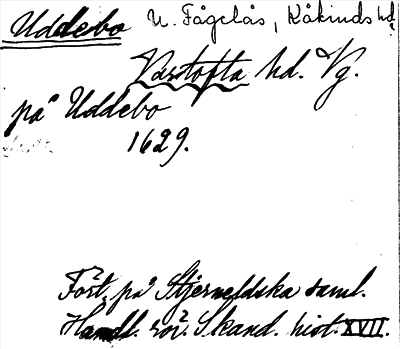 Uddebo N. Fågelås, Kåkinds hd?
Vartofta hd. Vg.
på Uddebo
1629.
Fört. på Stjerneldska saml.
Handl. rör. Skand. hist. XVII.